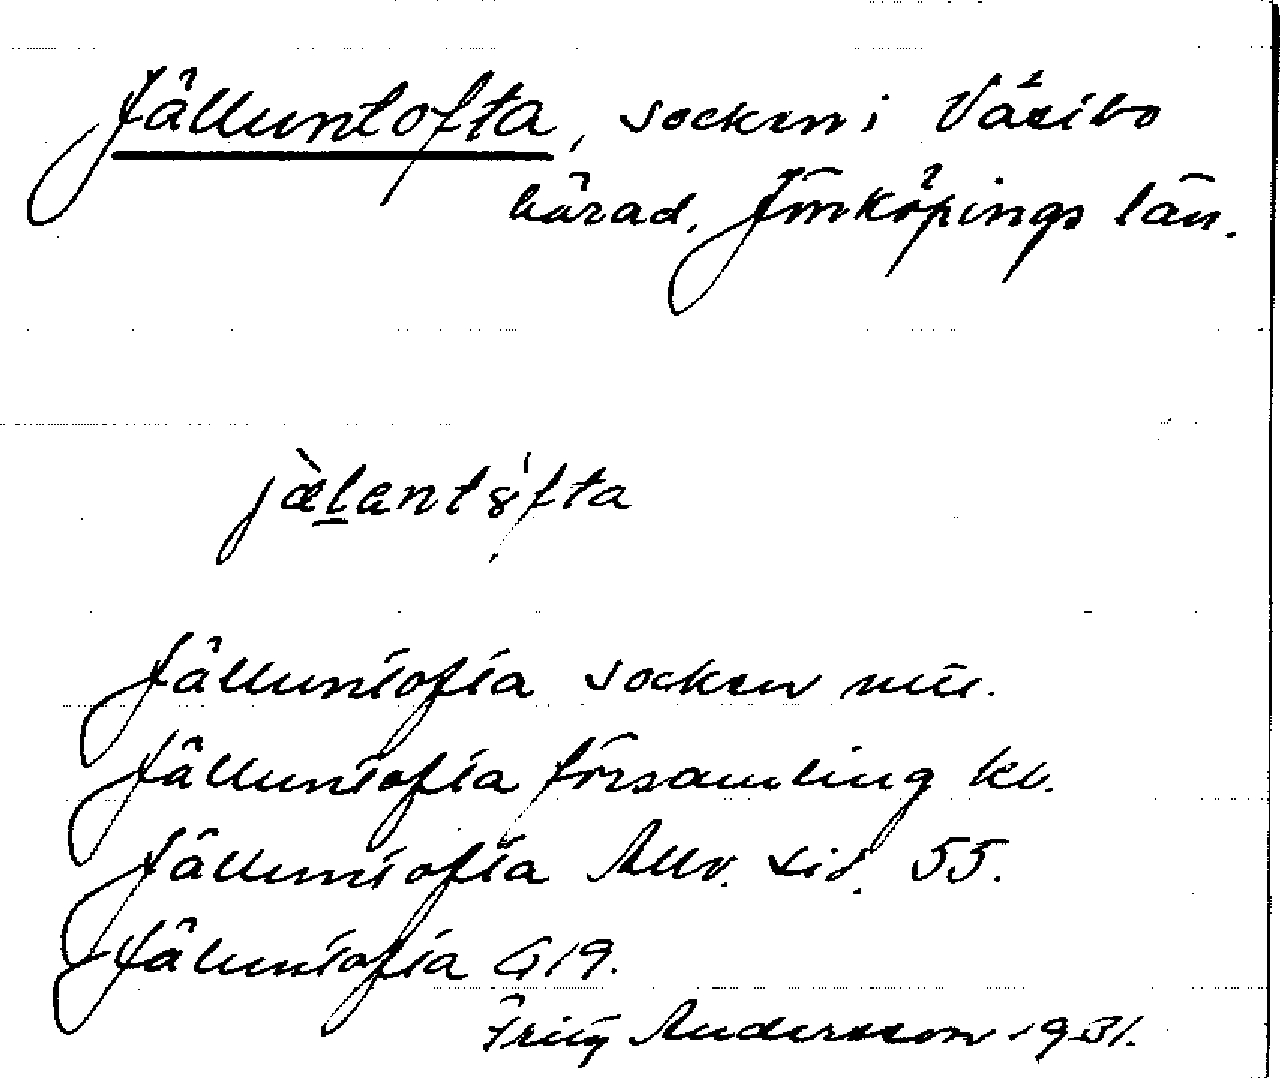 Jälluntofta, socken i Västbo
härad, Jönköpings län.
jæ̀lantȣ́fta
Jälluntofta socken
Jälluntofta församling kb.
Jälluntofta Allv. sid. 55.
Jäluntofta G 19.
Fritz Andersson 1931.